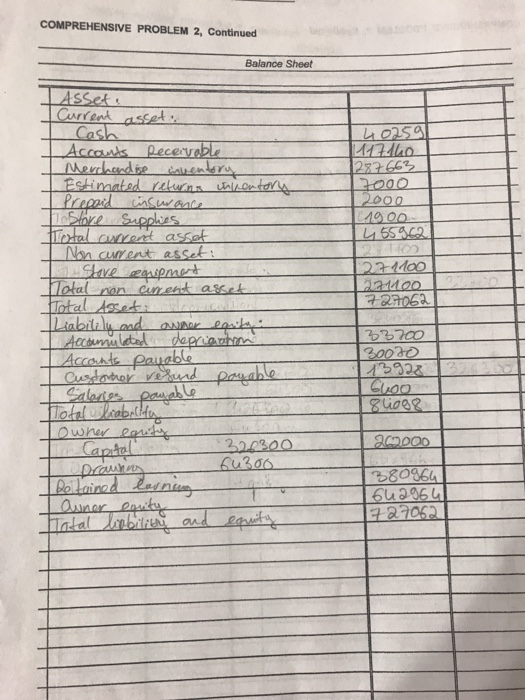 COMPREHENSIVE PROBLEM 2, Continued
Balance Sheet
Asset:
Current asset:
Cash 40259
Accounts Receivable 117140
Merchandise inventory 287663
Estimated returns inventory 7000
Prepaid insurance 2000
Store Supplies 1900
Total current asset 455962
Non current asset:
Store equipment 271100
Total non current asset 271100
Total Asset: 727062
Liability and owner equity:
Accumulated depriciation 33700
Accounts payable 30070
Customer refund payable 13928
Salaries payable 6400
Total liability 84098
Owner equity
Capital 326300 262000
Drawing 64300
Retained earning 380964
Owner equity 642964
Total liability and equity 727062